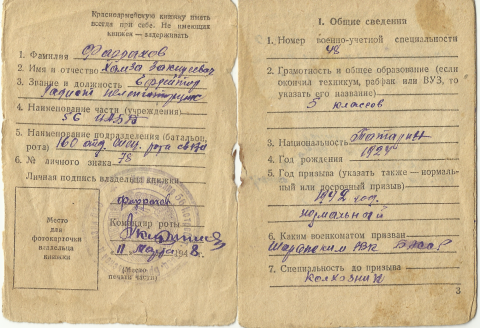 Красноармейскую книжку иметь
всегда при себе. Не имеющих
книжек — задерживать
1. Фамилия Фаррахов
2. Имя и отчество Хамза
3. Звание и должность Ефрейтор
Радист
4. Наименование части (учреждения)
56
5. Наименование подразделения (батальон,
рота) 160 рота связи
6. № личного знака 78
Личная подпись владельца книжки
Фаррахов
Место
для
фотокарточки
владельца
книжки
Командир роты
11 Марта 194 г.
(Место
печати части)
I. Общие сведения
1. Номер военно-учетной специальности
48
2. Грамотность и общее образование (если
окончил техникум, рабфак или ВУЗ, то
указать его название)
5 классов
3. Национальность Татарин
4. Год рождения 1924
5. Год призыва (указать также — нормаль-
ный или досрочный призыв)
1942 год.
нормальный
6. Каким военкоматом призван
Шаранским РВК БАССР
7. Специальность до призыва
колхозник
3